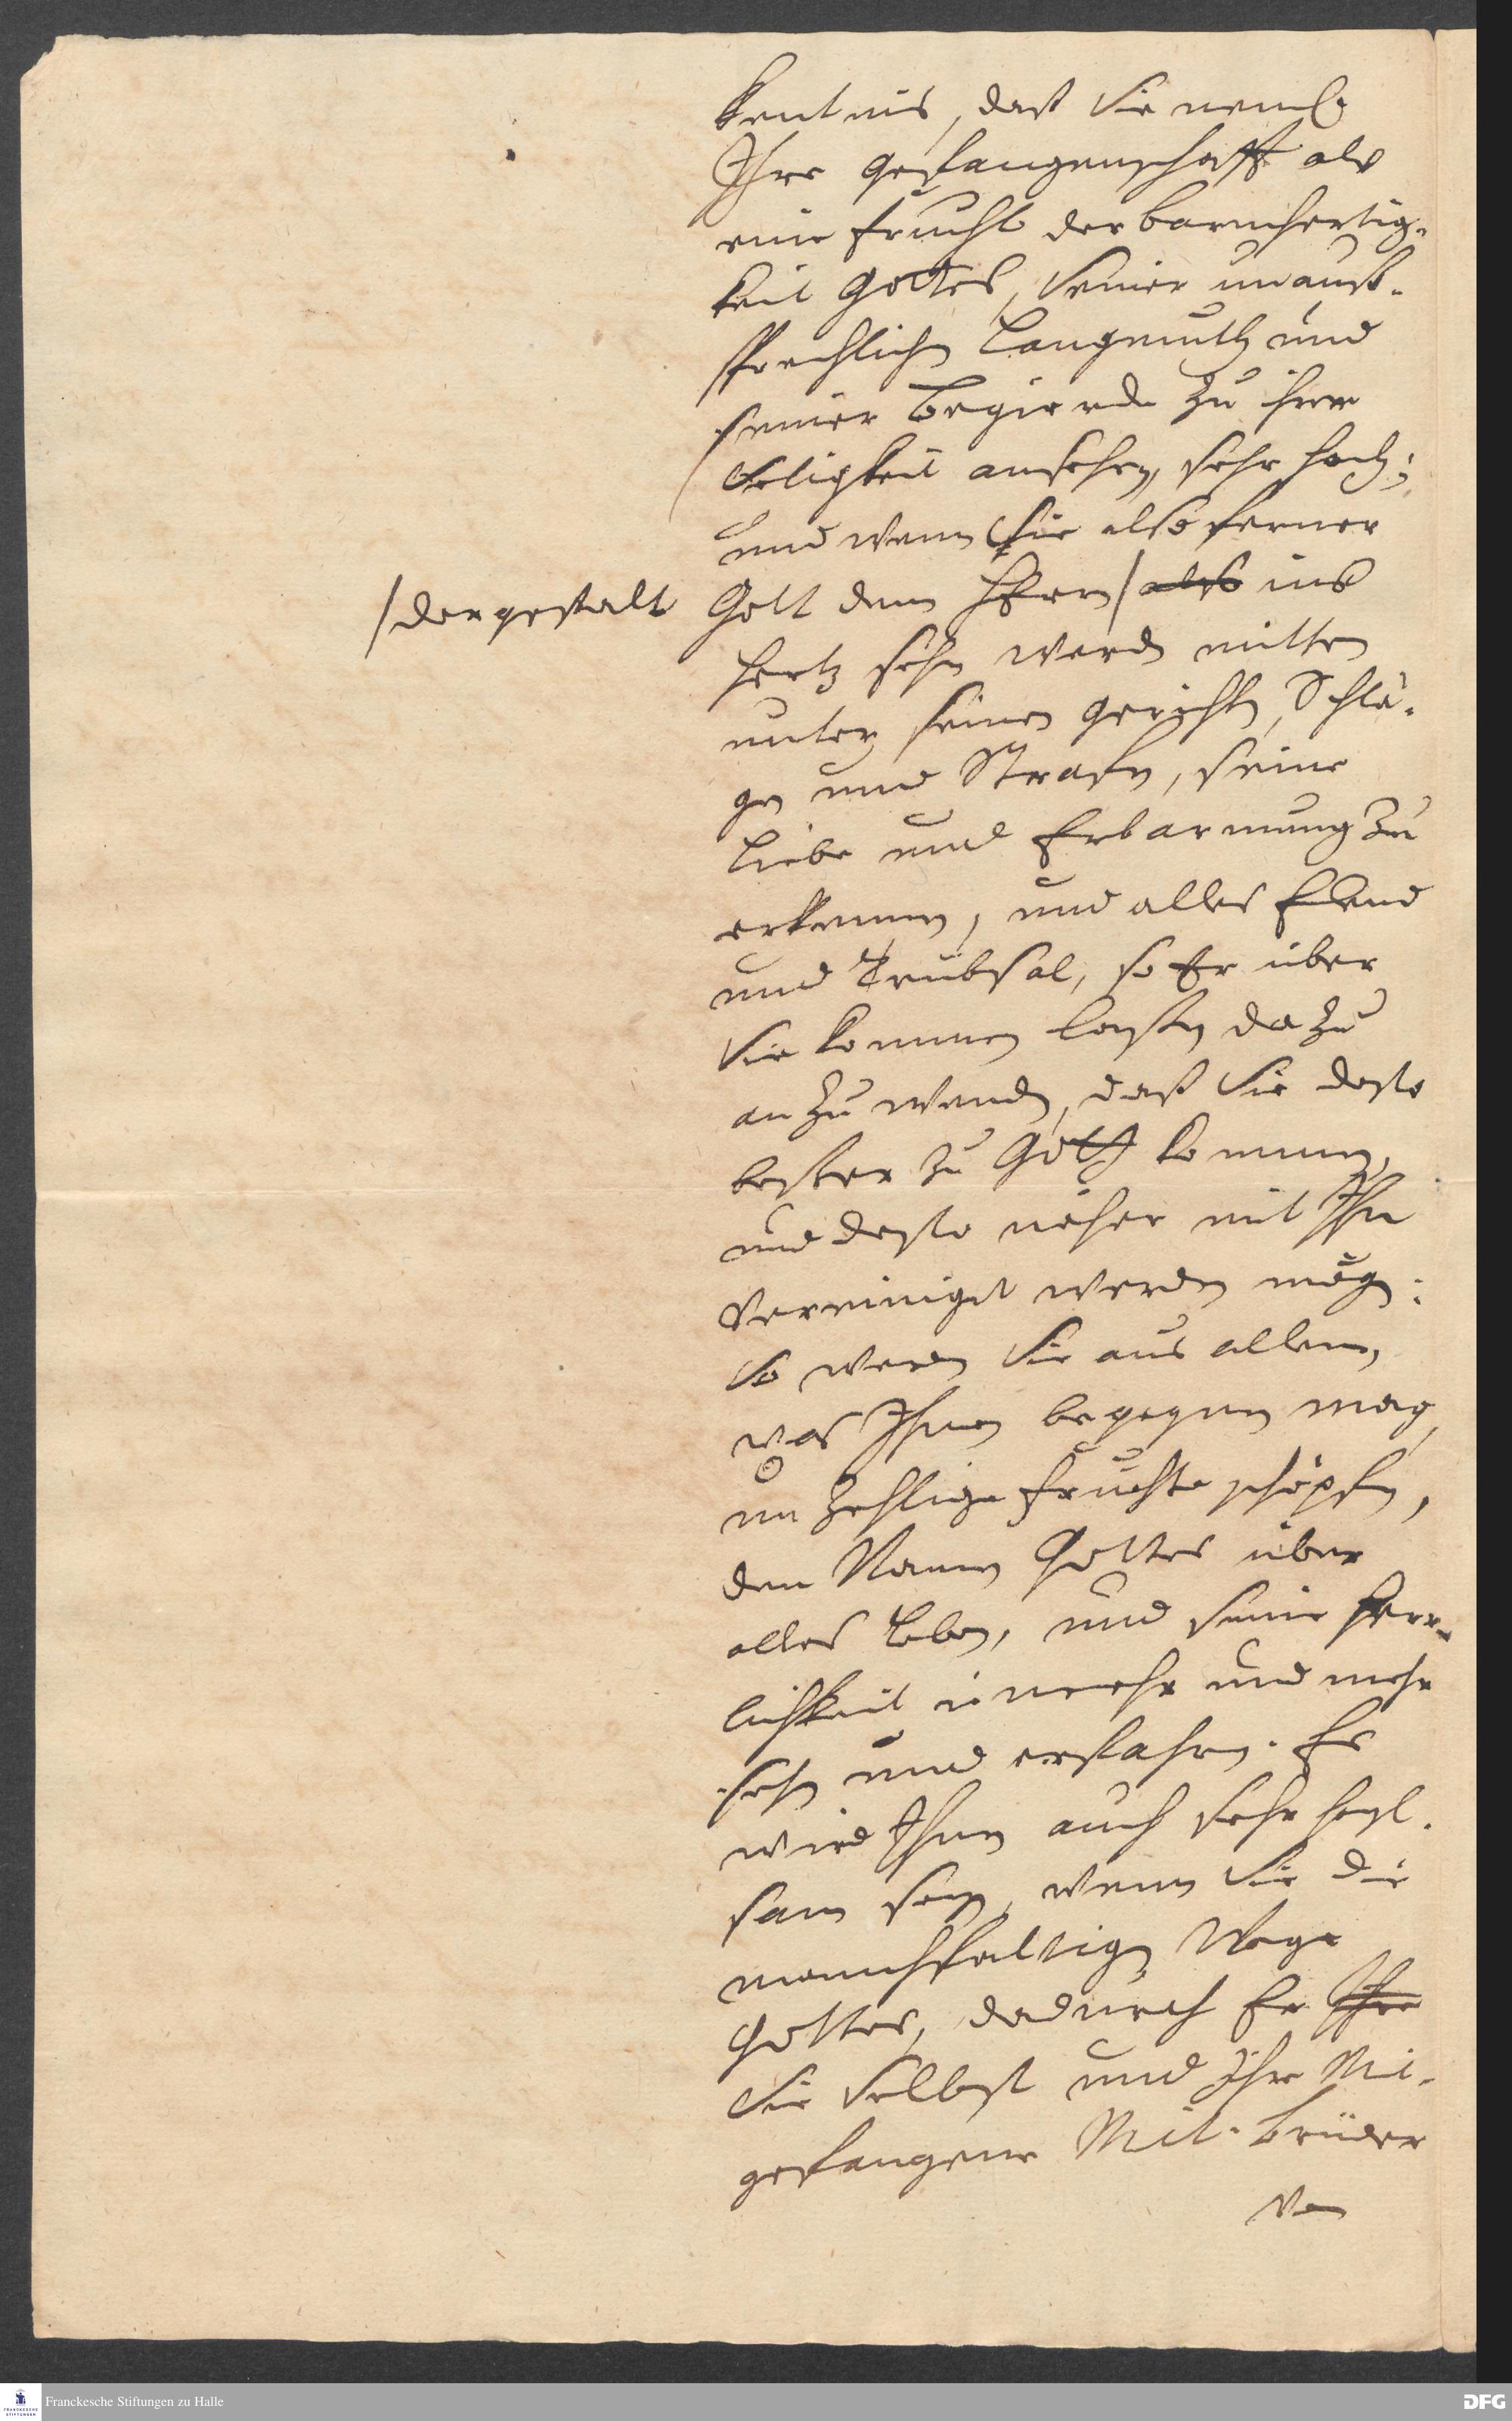 kentnis, daß Sie neml.
Ihre gefangenschafft als
eine frucht der barmhertzig-
keit Gottes, seiner unauß-
sprechlichen Langmuth und
seiner Begierde zu ihrer
Seligkeit ansehen, sehr hoch;
und wenn Sie also ferner
/dergestalt
Gott dem Herrn / also ins
hertz sehen werden mitten
unter seinen gerichten, Schlä-
gen und Strafen, seine
Liebe und Erbarmung zu
erkennen, und alles Elend
und Trübsal, so Er über
Sie kommen lassen dazu
anzuwenden, daß Sie desto
besser zu Gott kommen,
und desto näher mit Ihm
vereiniget werden mögen:
So werden Sie aus allem,
was Ihnen begegnen mag,
unzehlige früchte schöpfen,
den Namen Gottes über
alles loben, und seine Herr-
lichkeit ie mehr und mehr
sehen und erfahren. Es
wird Ihnen auch sehr heyl-
sam seyn, wenn Sie die
mannichfaltigen Wege
Gottes, dadurch Er Ihre
Sie Selbst und Ihre Mit-
gefangene Mit-Brüder